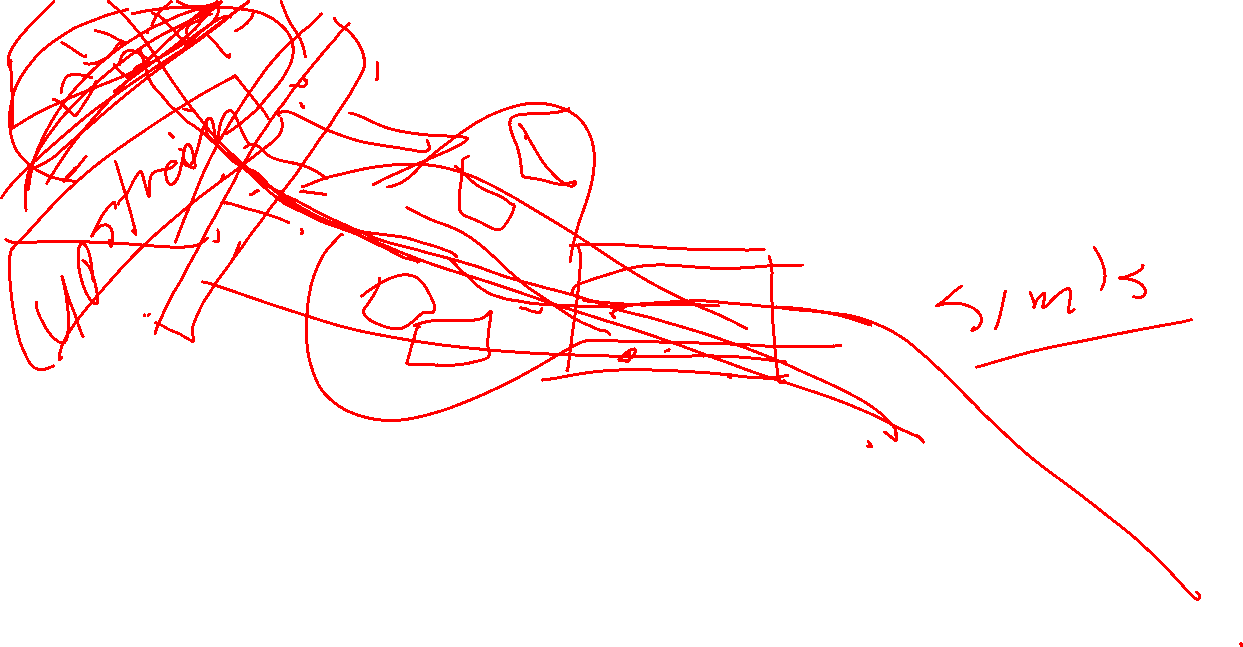 Upstream
sim's